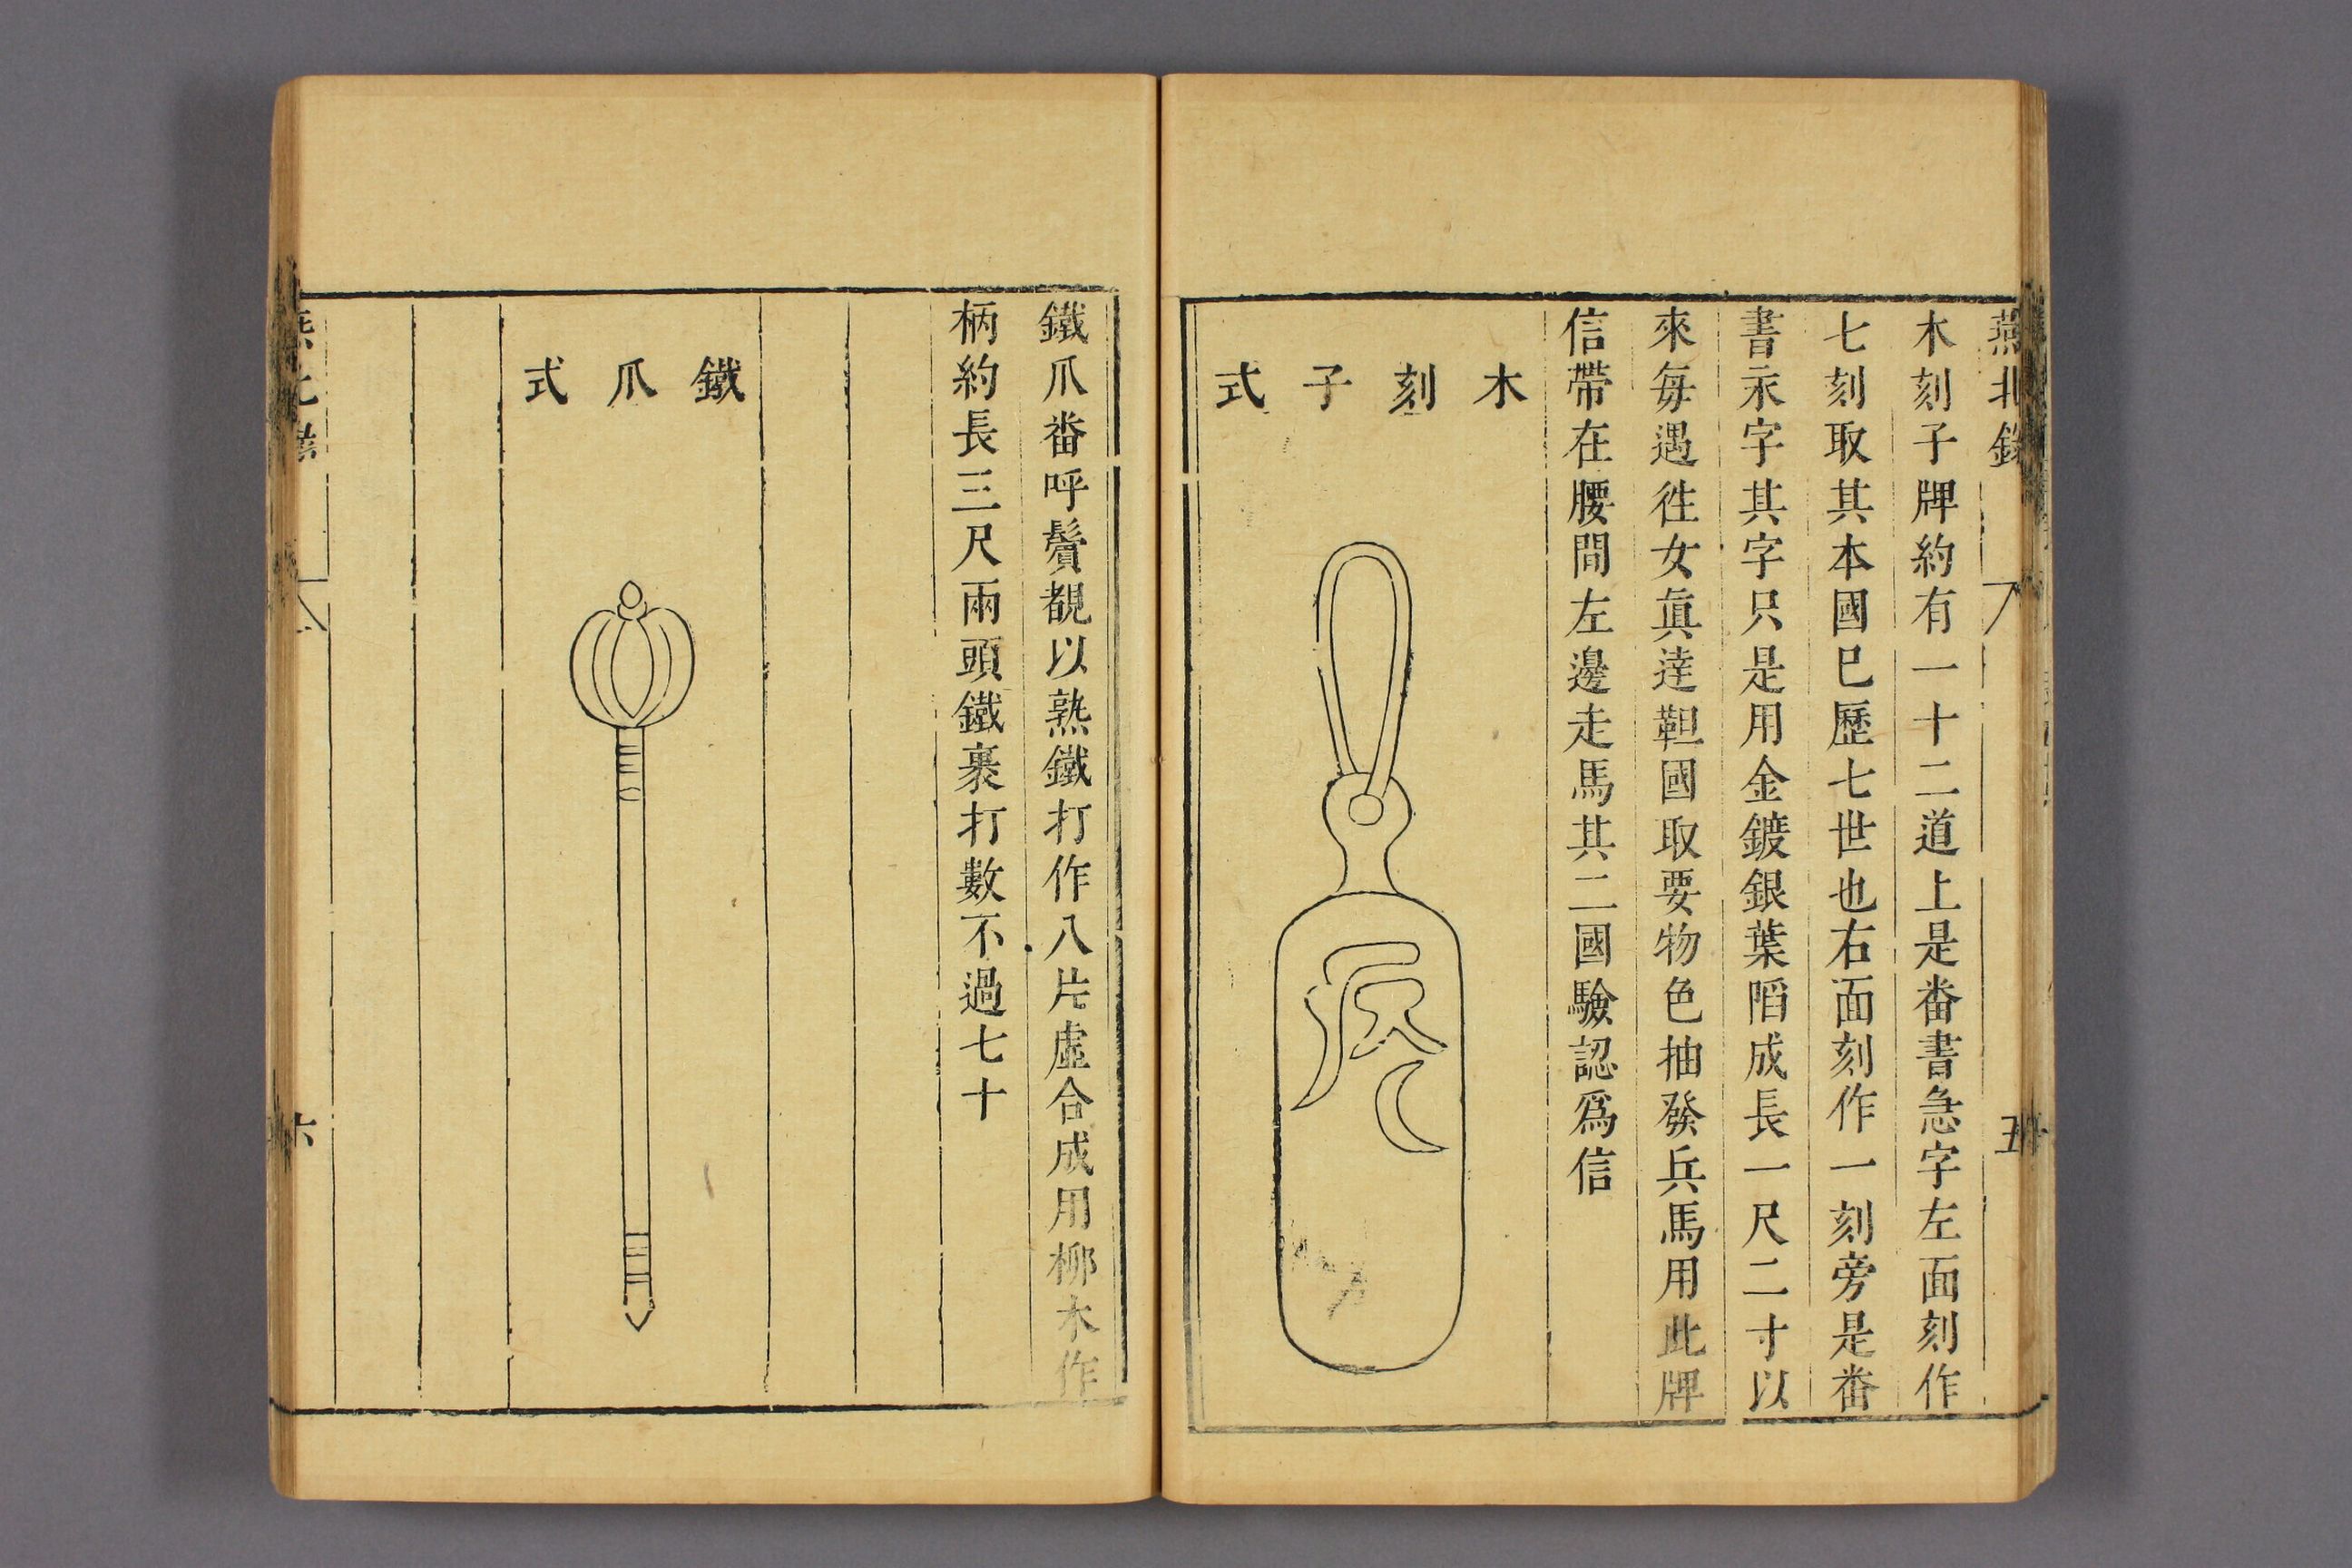 燕北錄
五
木刻子牌約有一十二道上是畨書急字左面刻作
七刻取其本國巳歷七世也右面刻作一刻旁是畨
書永字其字只是用金鍍銀葉䧟成長一尺二寸以
來每遇徃女眞達靼國取要物色抽發兵馬用此牌
信帶在腰間左邊走馬其二國驗認爲信
木刻子式
鐵爪畨呼鬢覩以熟鐵打作八片虛合成用栁木作
柄約長三尺兩頭鐵裹打數不過七十
鐵爪式
六